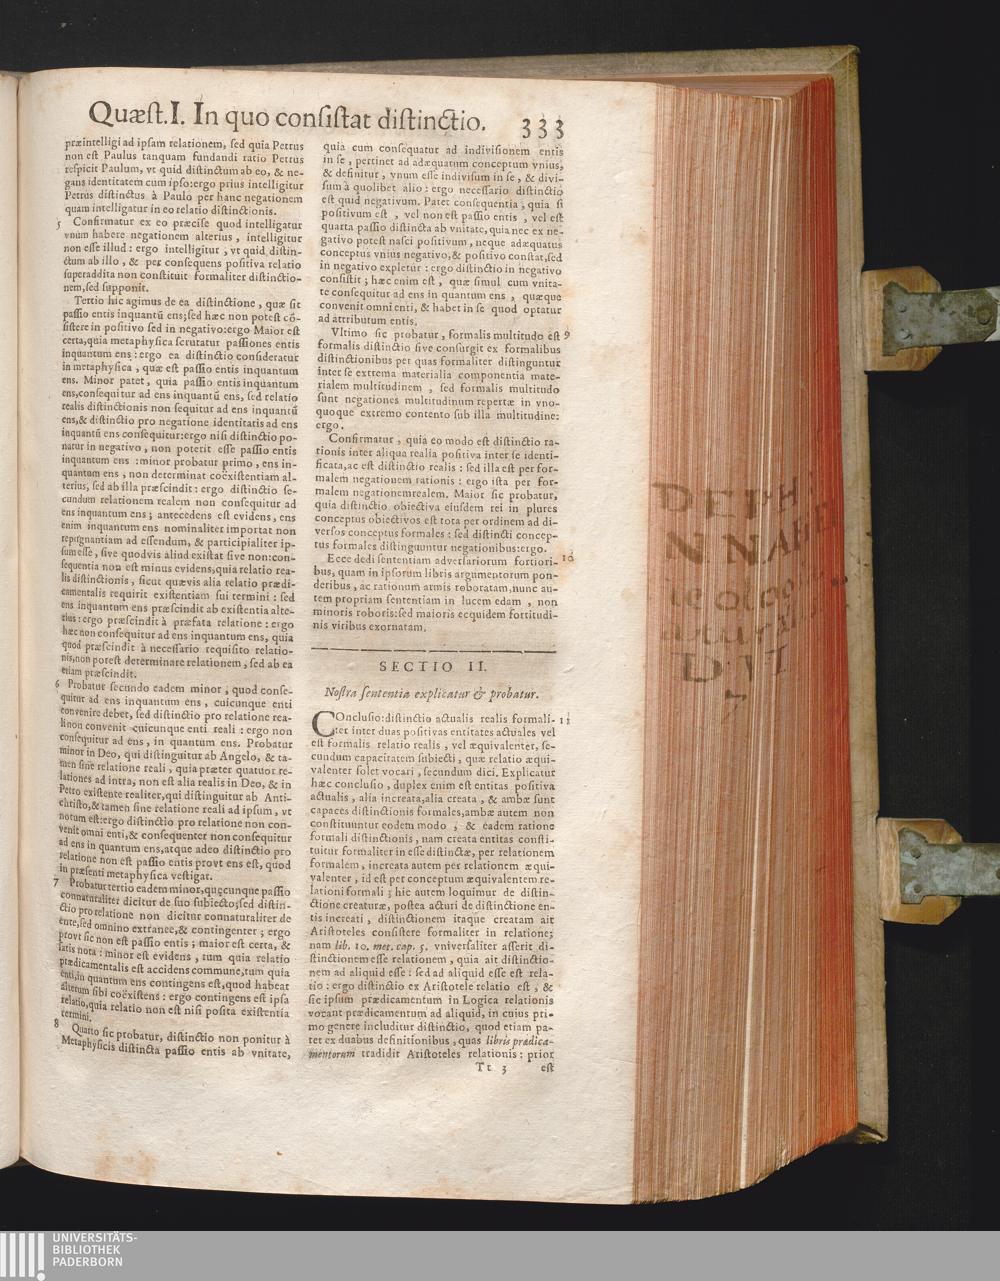 Quæst. I. In quo consistat distinctio. 333
præintelligi ad ipsam relationem, sed quia Petrus
non est Paulus tanquam fundandi ratio Petrus
respicit Paulum, vt quid distinctum ab eo, & ne-
gans identitatem cum ipso: ergo prius intelligitur
Petrus distinctus à Paulo per hanc negationem
quam intelligatur in eo relatio distinctionis.
5 Confirmatur ex eo præcise quod intelligatur
vnum habere negationem alterius, intelligitur
non esse illud: ergo intelligitur, vt quid distin-
ctum ab illo, & per consequens positiva relatio
superaddita non constituit formaliter distinctio-
nem, sed supponit.
Tertio hic agimus de ea distinctione, quæ sit
passio entis inquantũ ens; sed hæc non potest cõ-
sistere in positivo sed in negativo: ergo Maior est
certa, quia metaphysica scrutatur passiones entis
inquantum ens: ergo ea distinctio consideratur
in metaphysica, quæ est passio entis inquantum
ens. Minor patet, quia passio entis inquantum
ens, consequitur ad ens inquantũ ens, sed relatio
realis distinctionis non sequitur ad ens inquantũ
ens, & distinctio pro negatione identitatis ad ens
inquantũ ens consequitur: ergo nisi distinctio po-
natur in negativo, non poterit esse passio entis
inquantum ens: minor probatur primo, ens in-
quantum ens, non determinat coëxistentiam al-
terius, sed ab illa præscindit: ergo distinctio se-
cundum relationem realem non consequitur ad
ens inquantum ens; antecedens est evidens, ens
enim inquantum ens nominaliter importat non
repugnantiam ad essendum, & participialiter ip-
sum esse, sive quodvis aliud existat sive non: con-
sequentia non est minus evidens, quia relatio rea-
lis distinctionis, sicut quævis alia relatio prædi-
camentalis requirit existentiam sui termini: sed
ens inquantum ens præscindit ab existentia alte-
rius: ergo præscindit à præfata relatione: ergo
hæc non consequitur ad ens inquantum ens, quia
quod præscindit à necessario requisito relatio-
nis, non potest determinare relationem, sed ab ea
etiam præscindit.
6 Probatur secundo eadem minor, quod conse-
quitur ad ens inquantum ens, cuicunque enti
convenire debet, sed distinctio pro relatione rea-
li non convenit cuicunque enti reali: ergo non
consequitur ad ens, in quantum ens. Probatur
minor in Deo, qui distinguitur ab Angelo, & ta-
men sine relatione reali, quia præter quatuor re-
lationes ad intra, non est alia realis in Deo, & in
Petro existente realiter, qui distinguitur ab Anti-
christo, & tamen sine relatione reali ad ipsum, vt
notum est: ergo distinctio pro relatione non con-
venit omni enti, & consequenter non consequitur
ad ens in quantum ens, atque adeo distinctio pro
relatione non est passio entis provt ens est, quod
in præsenti metaphysica vestigat.
7 Probatur tertio eadem minor, quęcunque passio
connaturaliter dicitur de suo subiecto; sed distin-
ctio pro relatione non dicitur connaturaliter de
ente, sed omnino extranee, & contingenter; ergo
provt sic non est passio entis; maior est certa, &
satis nota: minor est evidens, tum quia relatio
prædicamentalis est accidens commune, tum quia
enti, in quantum ens contingens est, quod habeat
alterum sibi coëxistens: ergo contingens est ipsa
relatio, quia relatio non est nisi posita existentia
termini.
8 Quarto sic probatur, distinctio non ponitur à
Metaphysicis distincta passio entis ab vnitate,
quia cum consequatur ad indivisionem entis
in se, pertinet ad adæquatum conceptum vnius,
& definitur, vnum esse indivisum in se, & divi-
sum à quolibet alio: ergo necessario distinctio
est quid negativum. Patet consequentia, quia si
positivum est, vel non est passio entis, vel est
quarta passio distincta ab vnitate, quia nec ex ne-
gativo potest nasci positivum, neque adæquatus
conceptus vnius negativo, & positivo constat, sed
in negativo expletur: ergo distinctio in negativo
consistit; hæc enim est, quæ simul cum vnita-
te consequitur ad ens in quantum ens, quæque
convenit omni enti, & habet in se quod optatur
ad attributum entis.
Vltimo sic probatur, formalis multitudo est 9
formalis distinctio sive consurgit ex formalibus
distinctionibus per quas formaliter distinguntur
inter se extrema materialia componentia mate-
rialem multitudinem, sed formalis multitudo
sunt negationes multitudinum repertæ in vno-
quoque extremo contento sub illa multitudine:
ergo.
Confirmatur, quia eo modo est distinctio ra-
tionis inter aliqua realia positiva inter se identi-
ficata, ac est distinctio realis: sed illa est per for-
malem negationem rationis: ergo ista per for-
malem negationem realem. Maior sic probatur,
quia distinctio obiectiva eiusdem rei in plures
conceptus obiectivos est tota per ordinem ad di-
versos conceptus formales: sed distincti concep-
tus formales distinguuntur negationibus: ergo.
Ecce dedi sententiam adversariorum fortiori- 10
bus, quam in ipsorum libris argumentorum pon-
deribus, ac rationum armis roboratam, nunc au-
tem propriam sententiam in lucem edam, non
minoris roboris: sed maioris ecquidem fortitudi-
nis viribus exornatam.
SECTIO II.
Nostra sententia explicatur & probatur.
COnclusio: distinctio actualis realis formali- 11
ter inter duas positivas entitates actuales vel
est formalis relatio realis, vel æquivalenter, se-
cundum capacitatem subiecti, quæ relatio æqui-
valenter solet vocari, secundum dici. Explicatur
hæc conclusio, duplex enim est entitas positiva
actualis, alia increata, alia creata, & ambæ sunt
capaces distinctionis formales, ambæ autem non
constituuntur eodem modo, & eadem ratione
formali distinctionis, nam creata entitas consti-
tuitur formaliter in esse distinctæ, per relationem
formalem, increata autem per relationem æqui-
valenter, id est per conceptum æquivalentem re-
lationi formali; hic autem loquimur de distin-
ctione creaturæ, postea acturi de distinctione en-
tis increati, distinctionem itaque creatam ait
Aristoteles consistere formaliter in relatione;
nam lib. 10. met. cap. 5. vniversaliter asserit di-
stinctionem esse relationem, quia ait distinctio-
nem ad aliquid esse: sed ad aliquid esse est rela-
tio: ergo distinctio ex Aristotele relatio est, &
sic ipsum prædicamentum in Logica relationis
vocant prædicamentum ad aliquid, in cuius pri-
mo genere includitur distinctio, quod etiam pa-
tet ex duabus definitionibus, quas libris prædica-
mentorum tradidit Aristoteles relationis: prior
Tt 3 est
DVI
UNIVERSITÄTS-
BIBLIOTHEK
PADERBORN